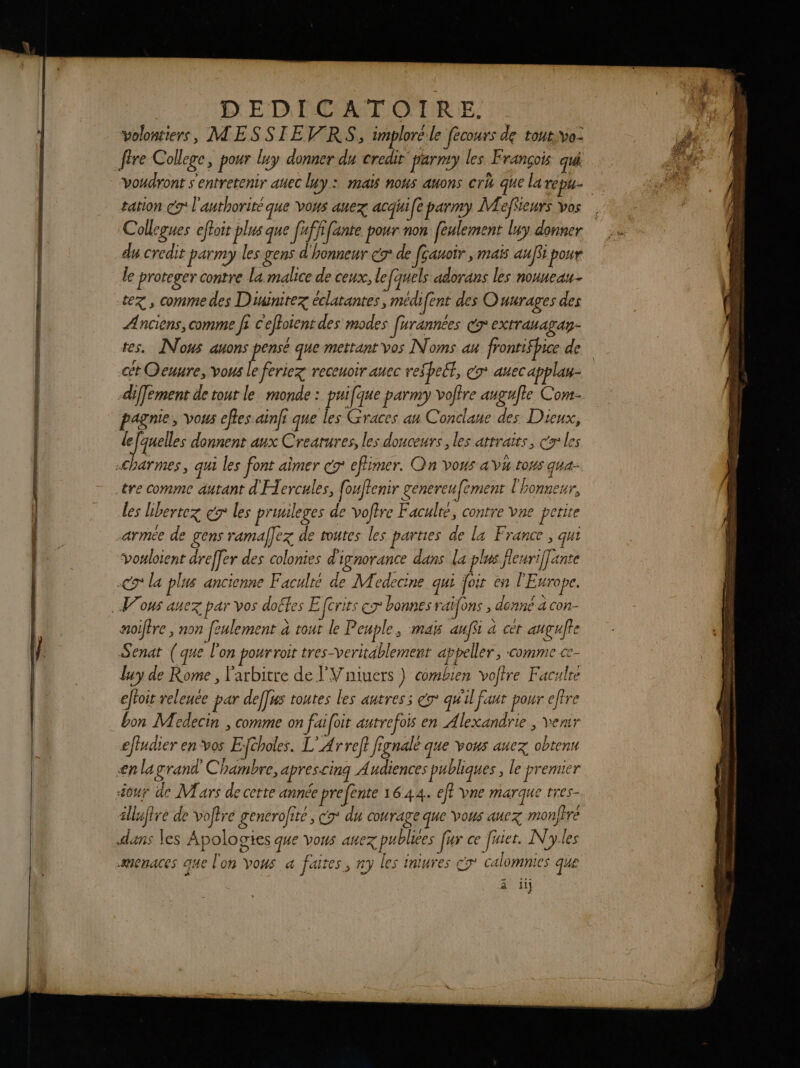 DEDICATOIRE.
volontiers, MESSIEVRS, imploré le secours de tout vo-
stre College, pour luy donner du credit parmy les François qui
voudront s'entretenir auec luy : mais nous auons crû que la repu-
tation & l'authorité que vous auez acquise parmy Messieurs vos
Collegues estoit plus que suffisante pour non seulement luy donner
du credit parmy les gens d'honneur & de sçauoir, mais aussi pour
le proteger contre la malice de ceux, lesquels adorans les nouueau-
tez, comme des Diuinitez éclatantes, médisent des Ouurages des
Anciens, comme si c'estoient des modes surannées & extrauagan-
tes. Nous auons pensé que mettant vos Noms au frontispice de
cét Oeuure, vous le feriez receuoir auec respect, & auec applau-
dissement de tout le monde : puisque parmy vostre auguste Com-
pagnie, vous estes ainsi que les Graces au Conclaue des Dieux,
lesquelles donnent aux Creatures, les douceurs, les attraits, & les
charmes, qui les font aimer & estimer. On vous a vû tous qua-
tre comme autant d'Hercules, soustenir genereusement l'honneur,
les libertez & les priuileges de vostre Faculté, contre vne petite
armée de gens ramassez de toutes les parties de la France, qui
vouloient dresser des colonies d'ignorance dans la plus fleurissante
& la plus ancienne Faculté de Medecine qui soit en l'Europe.
Vous auez par vos doctes Escrits & bonnes raisons, donné à con-
noistre, non seulement à tout le Peuple, mais aussi à cét auguste
Senat ( que l'on pourroit tres-veritablement appeller, comme ce-
luy de Rome, l'arbitre de l'Vniuers ) combien vostre Faculté
estoit releuée par dessus toutes les autres; & qu'il faut pour estre
bon Medecin, comme on faisoit autrefois en Alexandrie, venir
estudier en vos Escholes. L'Arrest signalé que vous auez obtenu
en la grand' Chambre, apres cinq Audiences publiques, le premier
iour de Mars de cette année presente 1644. est vne marque tres-
illustre de vostre generosité, & du courage que vous auez monstré
dans les Apologies que vous auez publiées sur ce suiet. Ny les
menaces que l'on vous a faites, ny les iniures & calomnies que
ã iij